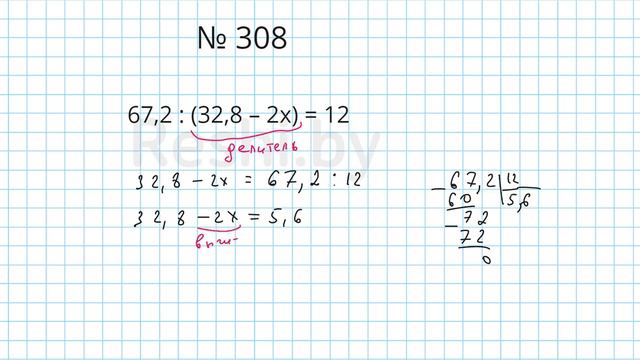 № 308
67,2 : (32,8 – 2x) = 12
делитель
32,8 – 2x = 67,2 : 12
32,8 – 2x = 5,6
выч-
– 67,2 | 12
60 5,6
– 72
72
0
Reshi.by